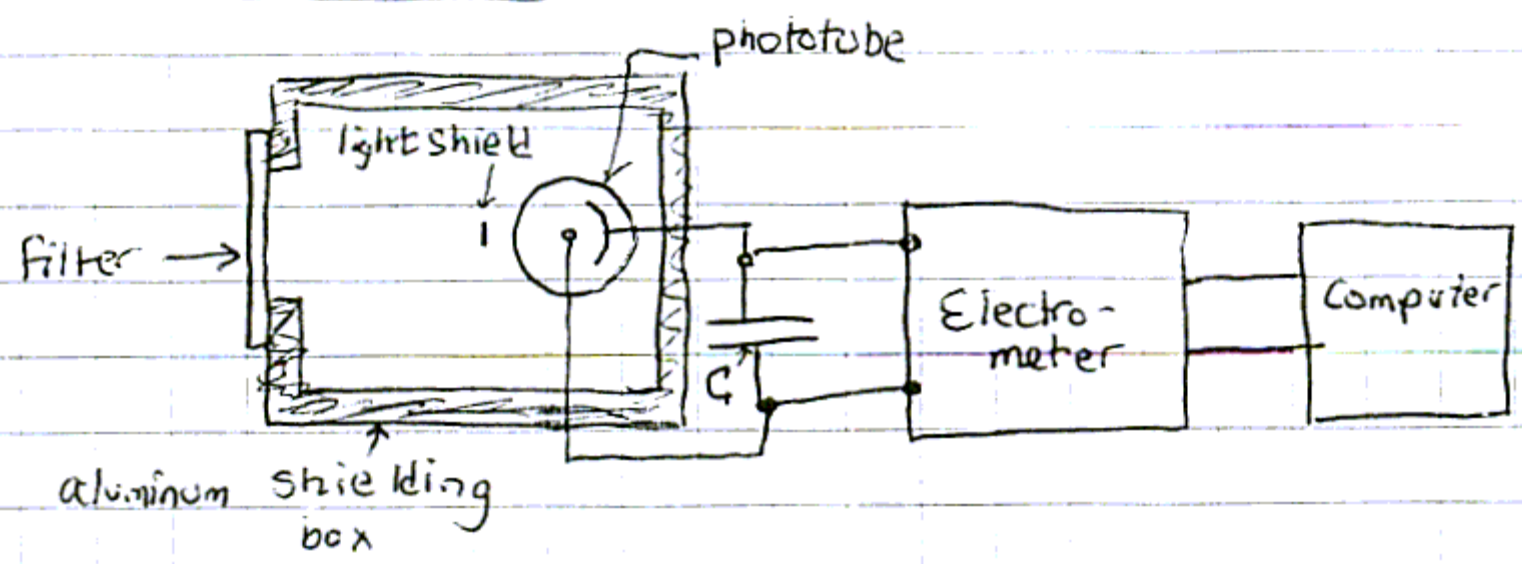 phototube
light shield
filter
Electro-
meter
Computer
C
aluminum shielding
box